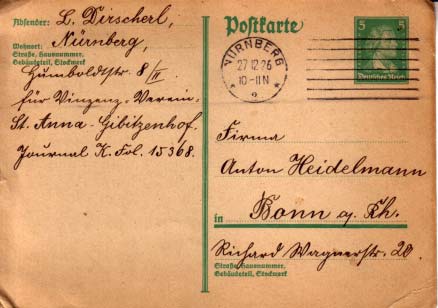 Absender: L. Dirscherl,
Nürnberg,
Wohnort:
Straße, Hausnummer,
Gebäudeteil, Stockwerk
Humboldtstr. 8/II
für Vinzenz-Verein-
St. Anna-Gibitzenhof.
Journal K. Fol. 15368.
Postkarte
NÜRNBERG
27.12.26
10-11 N
2
5 5
Deutsches Reich
Firma
Anton Heidelmann
in Bonn a. Rh.
Richard Wagnerstr. 20.
Straße, Hausnummer,
Gebäudeteil, Stockwerk